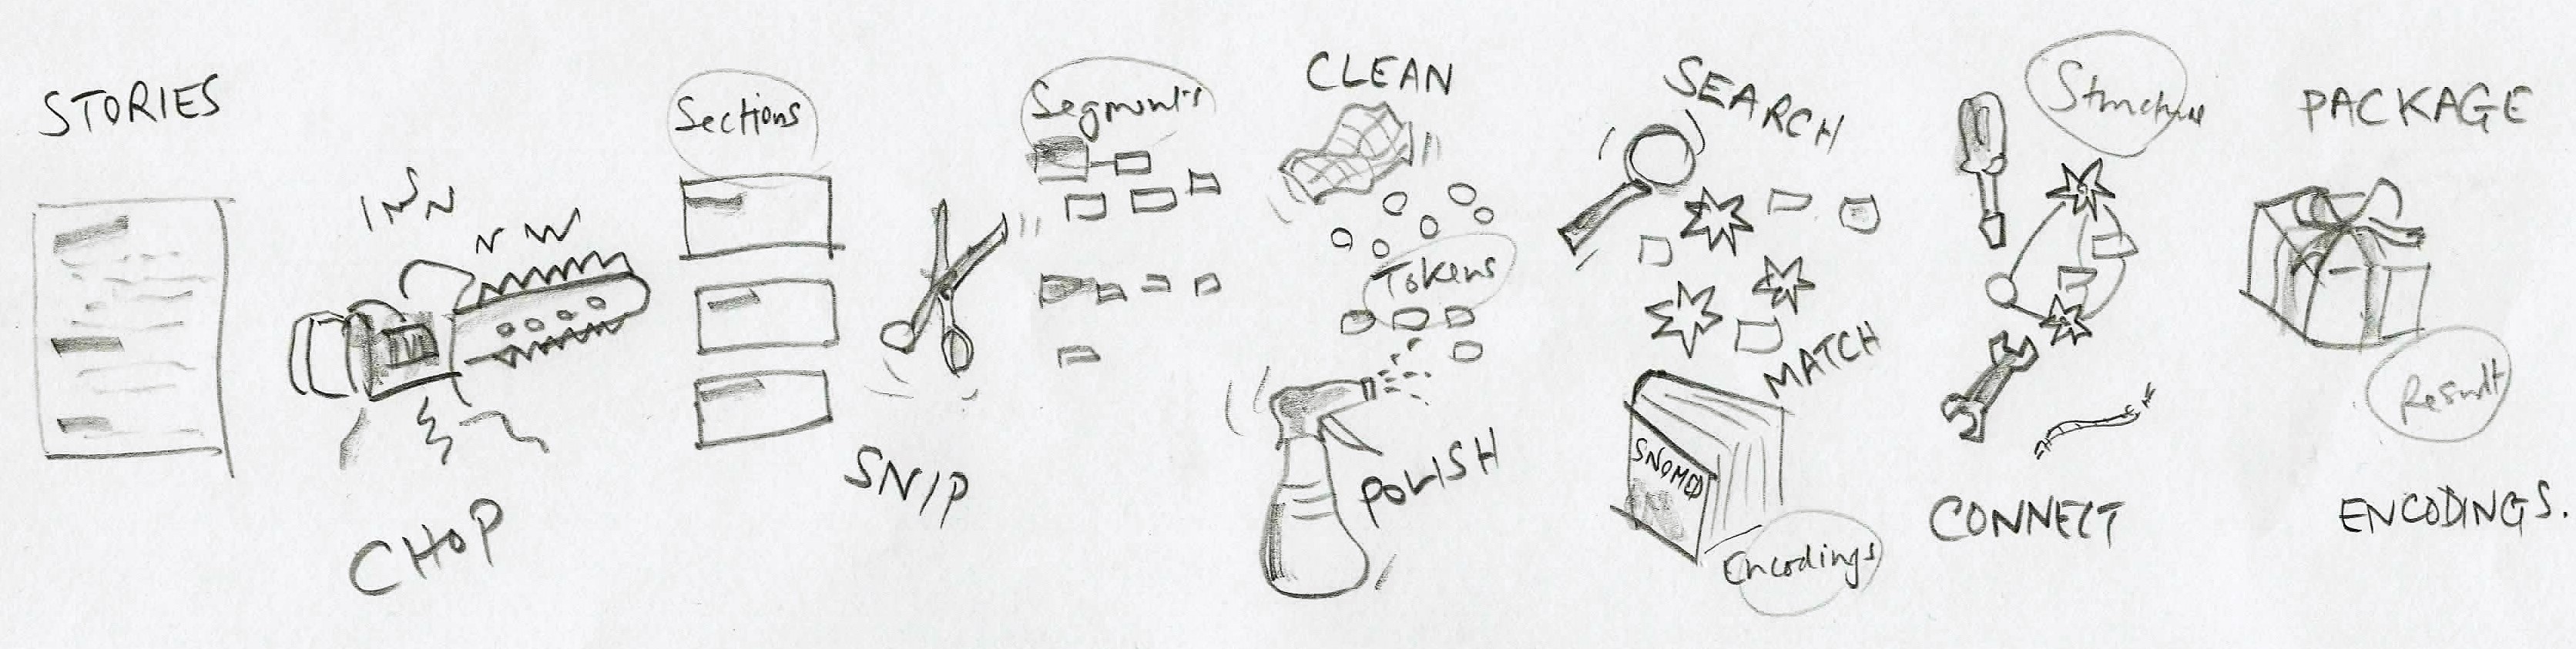 STORIES
CHOP
Sections
SNIP
Segments
CLEAN
Tokens
POLISH
SEARCH
MATCH
SNOMED
Encodings
Structure
CONNECT
PACKAGE
Result
ENCODINGS.